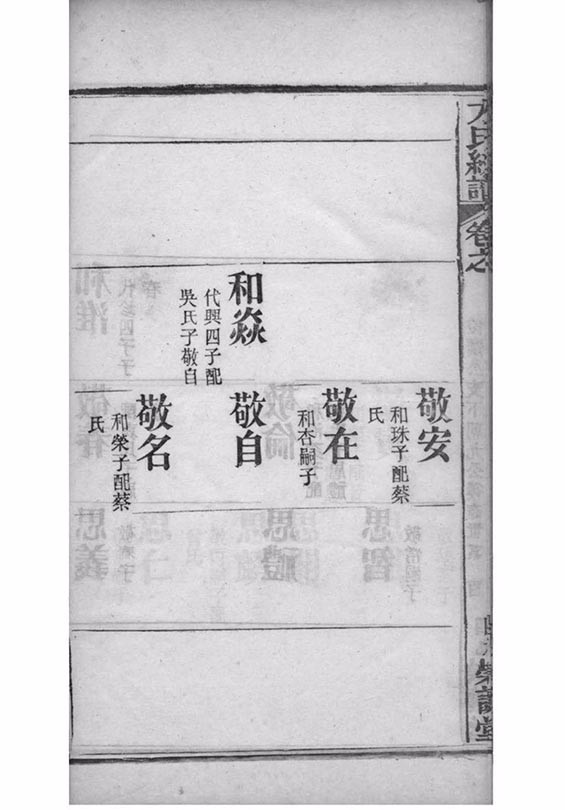 方氏統譜 卷之
和焱
代興四子配
吳氏子敬自
敬安
和珠子配蔡
氏
敬在
和杏嗣子
敬自
敬名
和榮子配蔡
氏